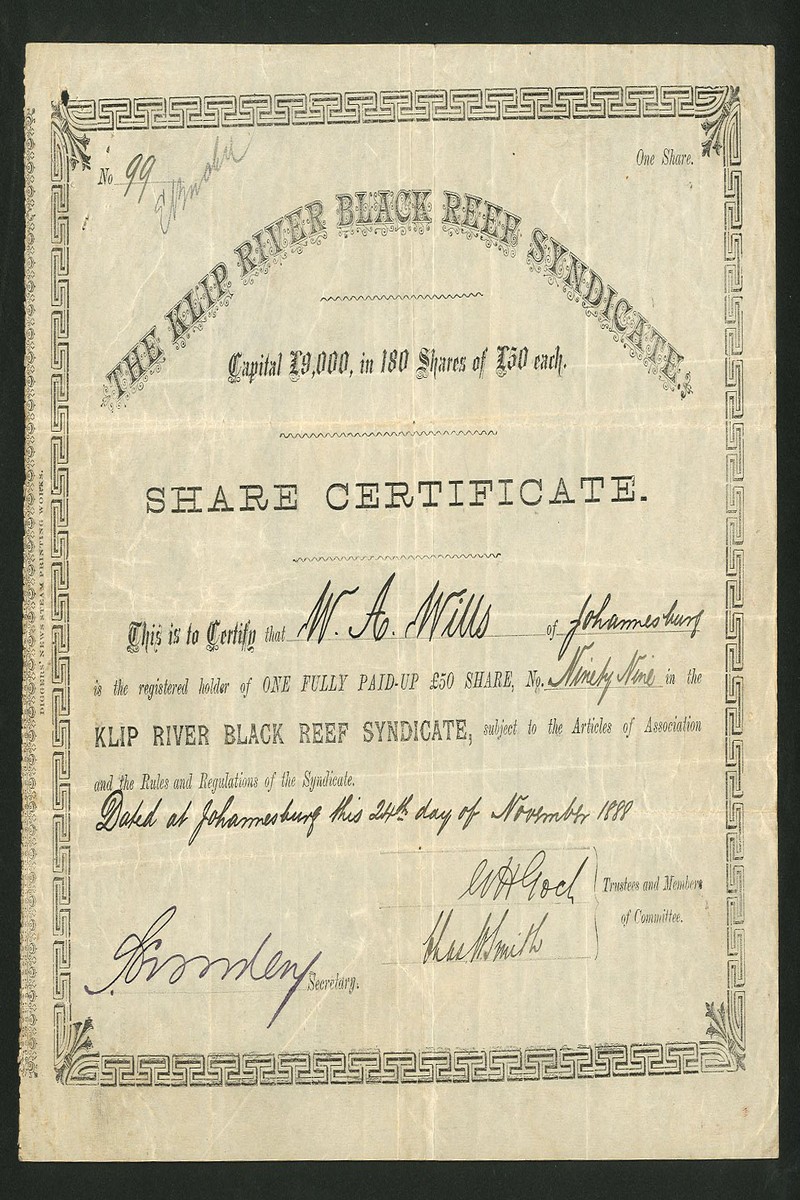 No 99
One Share.
THE KLIP RIVER BLACK REEF SYNDICATE.
Capital £9,000, in 180 Shares of £50 each.
SHARE CERTIFICATE.
This is to Certify that W. A. Wills of Johannesburg
is the registered holder of ONE FULLY PAID-UP £50 SHARE, No. Ninety Nine in the
KLIP RIVER BLACK REEF SYNDICATE, subject to the Articles of Association
and the Rules and Regulations of the Syndicate.
Dated at Johannesburg this 24th day of November 1888
WH Goch
Trustees and Members
of Committee.
Chas W Smith
Secretary.
DIGGERS' NEWS STEAM PRINTING WORKS.